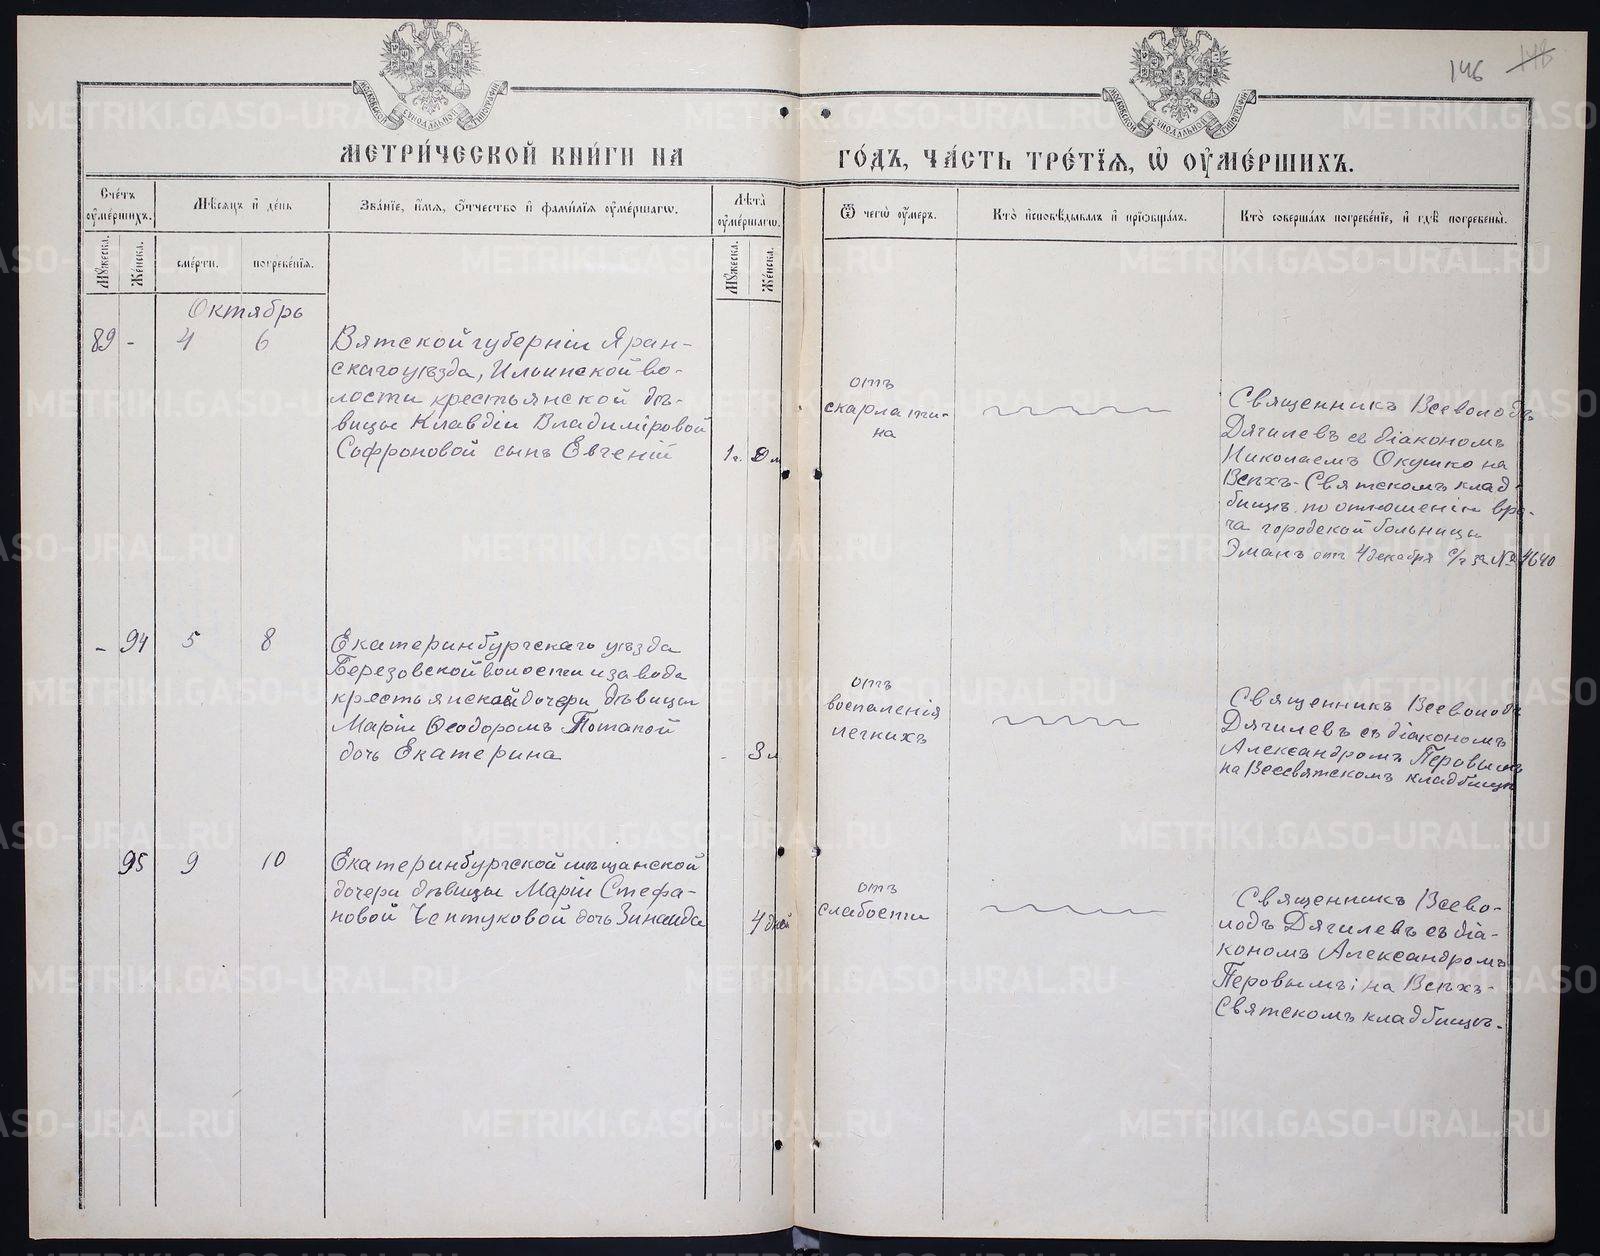 146
МОСКОВСКОЙ СѴНОДАЛЬНОЙ ТИПОГРАФІИ
МОСКОВСКОЙ СѴНОДАЛЬНОЙ ТИПОГРАФІИ
МЕТРИ́ЧЕСКОЙ КНИ́ГИ НА ГО́ДЪ, ЧА́СТЬ ТРЕ́ТІѦ, Ѡ҆ ОУ҆МЕ́РШИХЪ.
Сче́тъ оу҆ме́ршихъ.
Мѣ́сѧцъ и҆ де́нь
Зва́нїе, и҆́мѧ, ѻ҆́тчество и҆ фами́лїѧ оу҆ме́ршагѡ.
Лѣ́та оу҆ме́ршагѡ.
Ѿ чегѡ̀ оу҆́меръ.
Кто̀ и҆сповѣ́дывалъ и҆ прїѡбща́лъ.
Кто̀ соверша́лъ погребе́нїе, и҆ гдѣ̀ погребены̀.
Мꙋ́жеска.
Же́нска.
сме́рти.
погребе́нїѧ.
Мꙋ́жеска.
Же́нска.
Октябрь
89 - 4 6
Вятской губерніи Яран-
скаго уѣзда, Ильинской во-
лости крестьянской дѣ-
вицы Клавдіи Владиміровой
Софроновой сынъ Евгеній
1 г. м
отъ
скарлати-
на
Священникъ Всеволодъ
Дягилевъ съ діакономъ
Николаемъ Окушко на
Всѣхъ-Святскомъ клад-
бищѣ, по отношенію вра-
ча городской больницы
Эманъ отъ 4 декабря с/г за № 4640
- 94 5 8
Екатеринбургскаго уѣзда
Березовской волости и завода
крестьянской дочери, дѣвицы
Маріи Ѳеодоромъ Потапой
дочь Екатерина
- 3 м
отъ
воспаленія
легкихъ
Священникъ Всеволодъ
Дягилевъ съ діакономъ
Александромъ Перовымъ
на Всесвятскомъ кладбищѣ
95 9 10
Екатеринбургской мѣщанской
дочери дѣвицы Маріи Стефа-
новой Чептуковой дочь Зинаида
4 дней
отъ
слабости
Священникъ Всево-
лодъ Дягилевъ съ діа-
кономъ Александромъ
Перовымъ; на Всѣхъ-
Святскомъ кладбищѣ.
METRIKI.GASO-URAL.RU